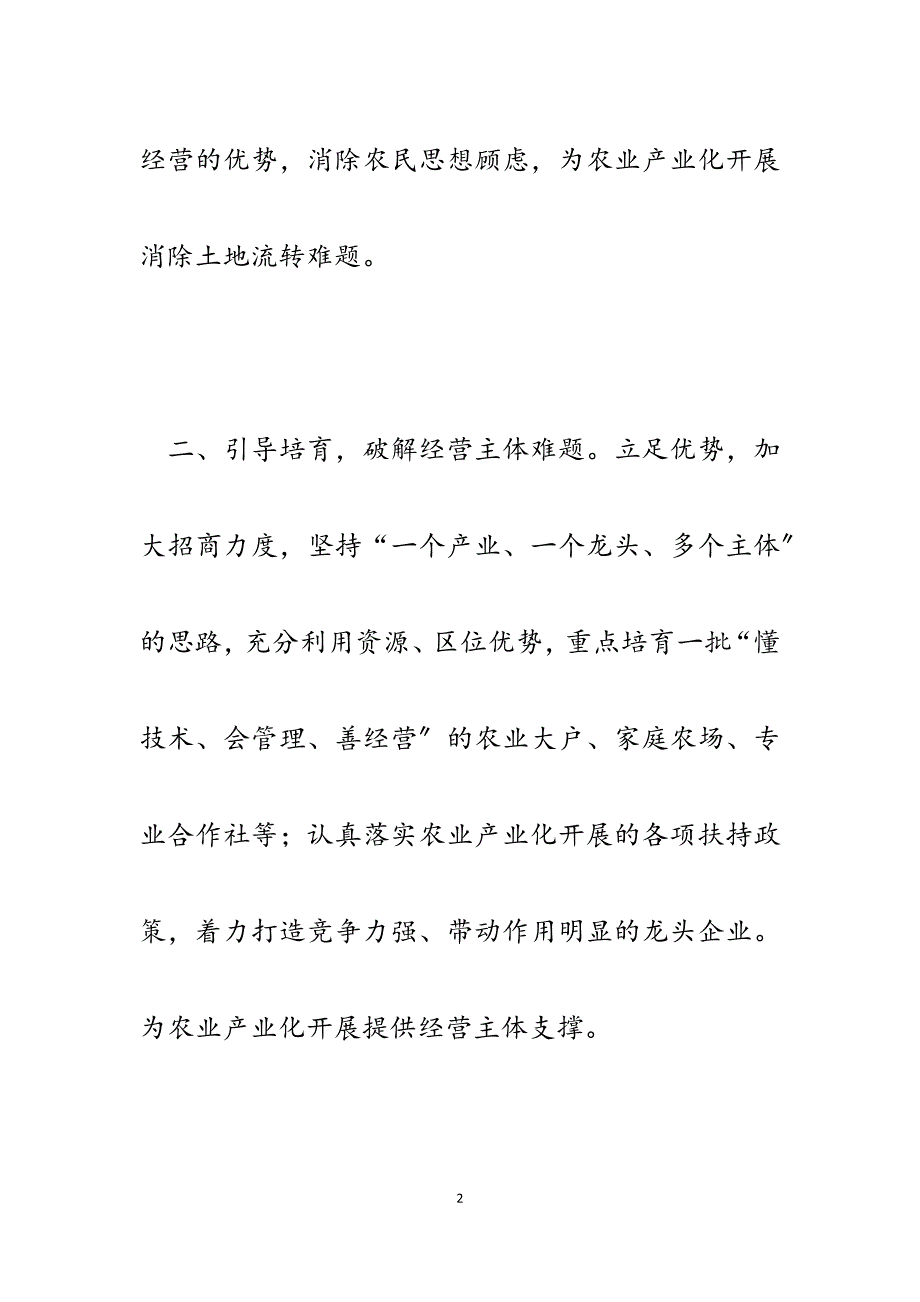 经营的优势，消除农民思想顾虑，为农业产业化开展
消除土地流转难题。
二、引导培育，破解经营主体难题。立足优势，加
大招商力度，坚持“一个产业、一个龙头、多个主体〞
的思路，充分利用资源、区位优势，重点培育一批“懂
技术、会管理、善经营〞的农业大户、家庭农场、专
业合作社等；认真落实农业产业化开展的各项扶持政
策，着力打造竞争力强、带动作用明显的龙头企业。
为农业产业化开展提供经营主体支撑。
2